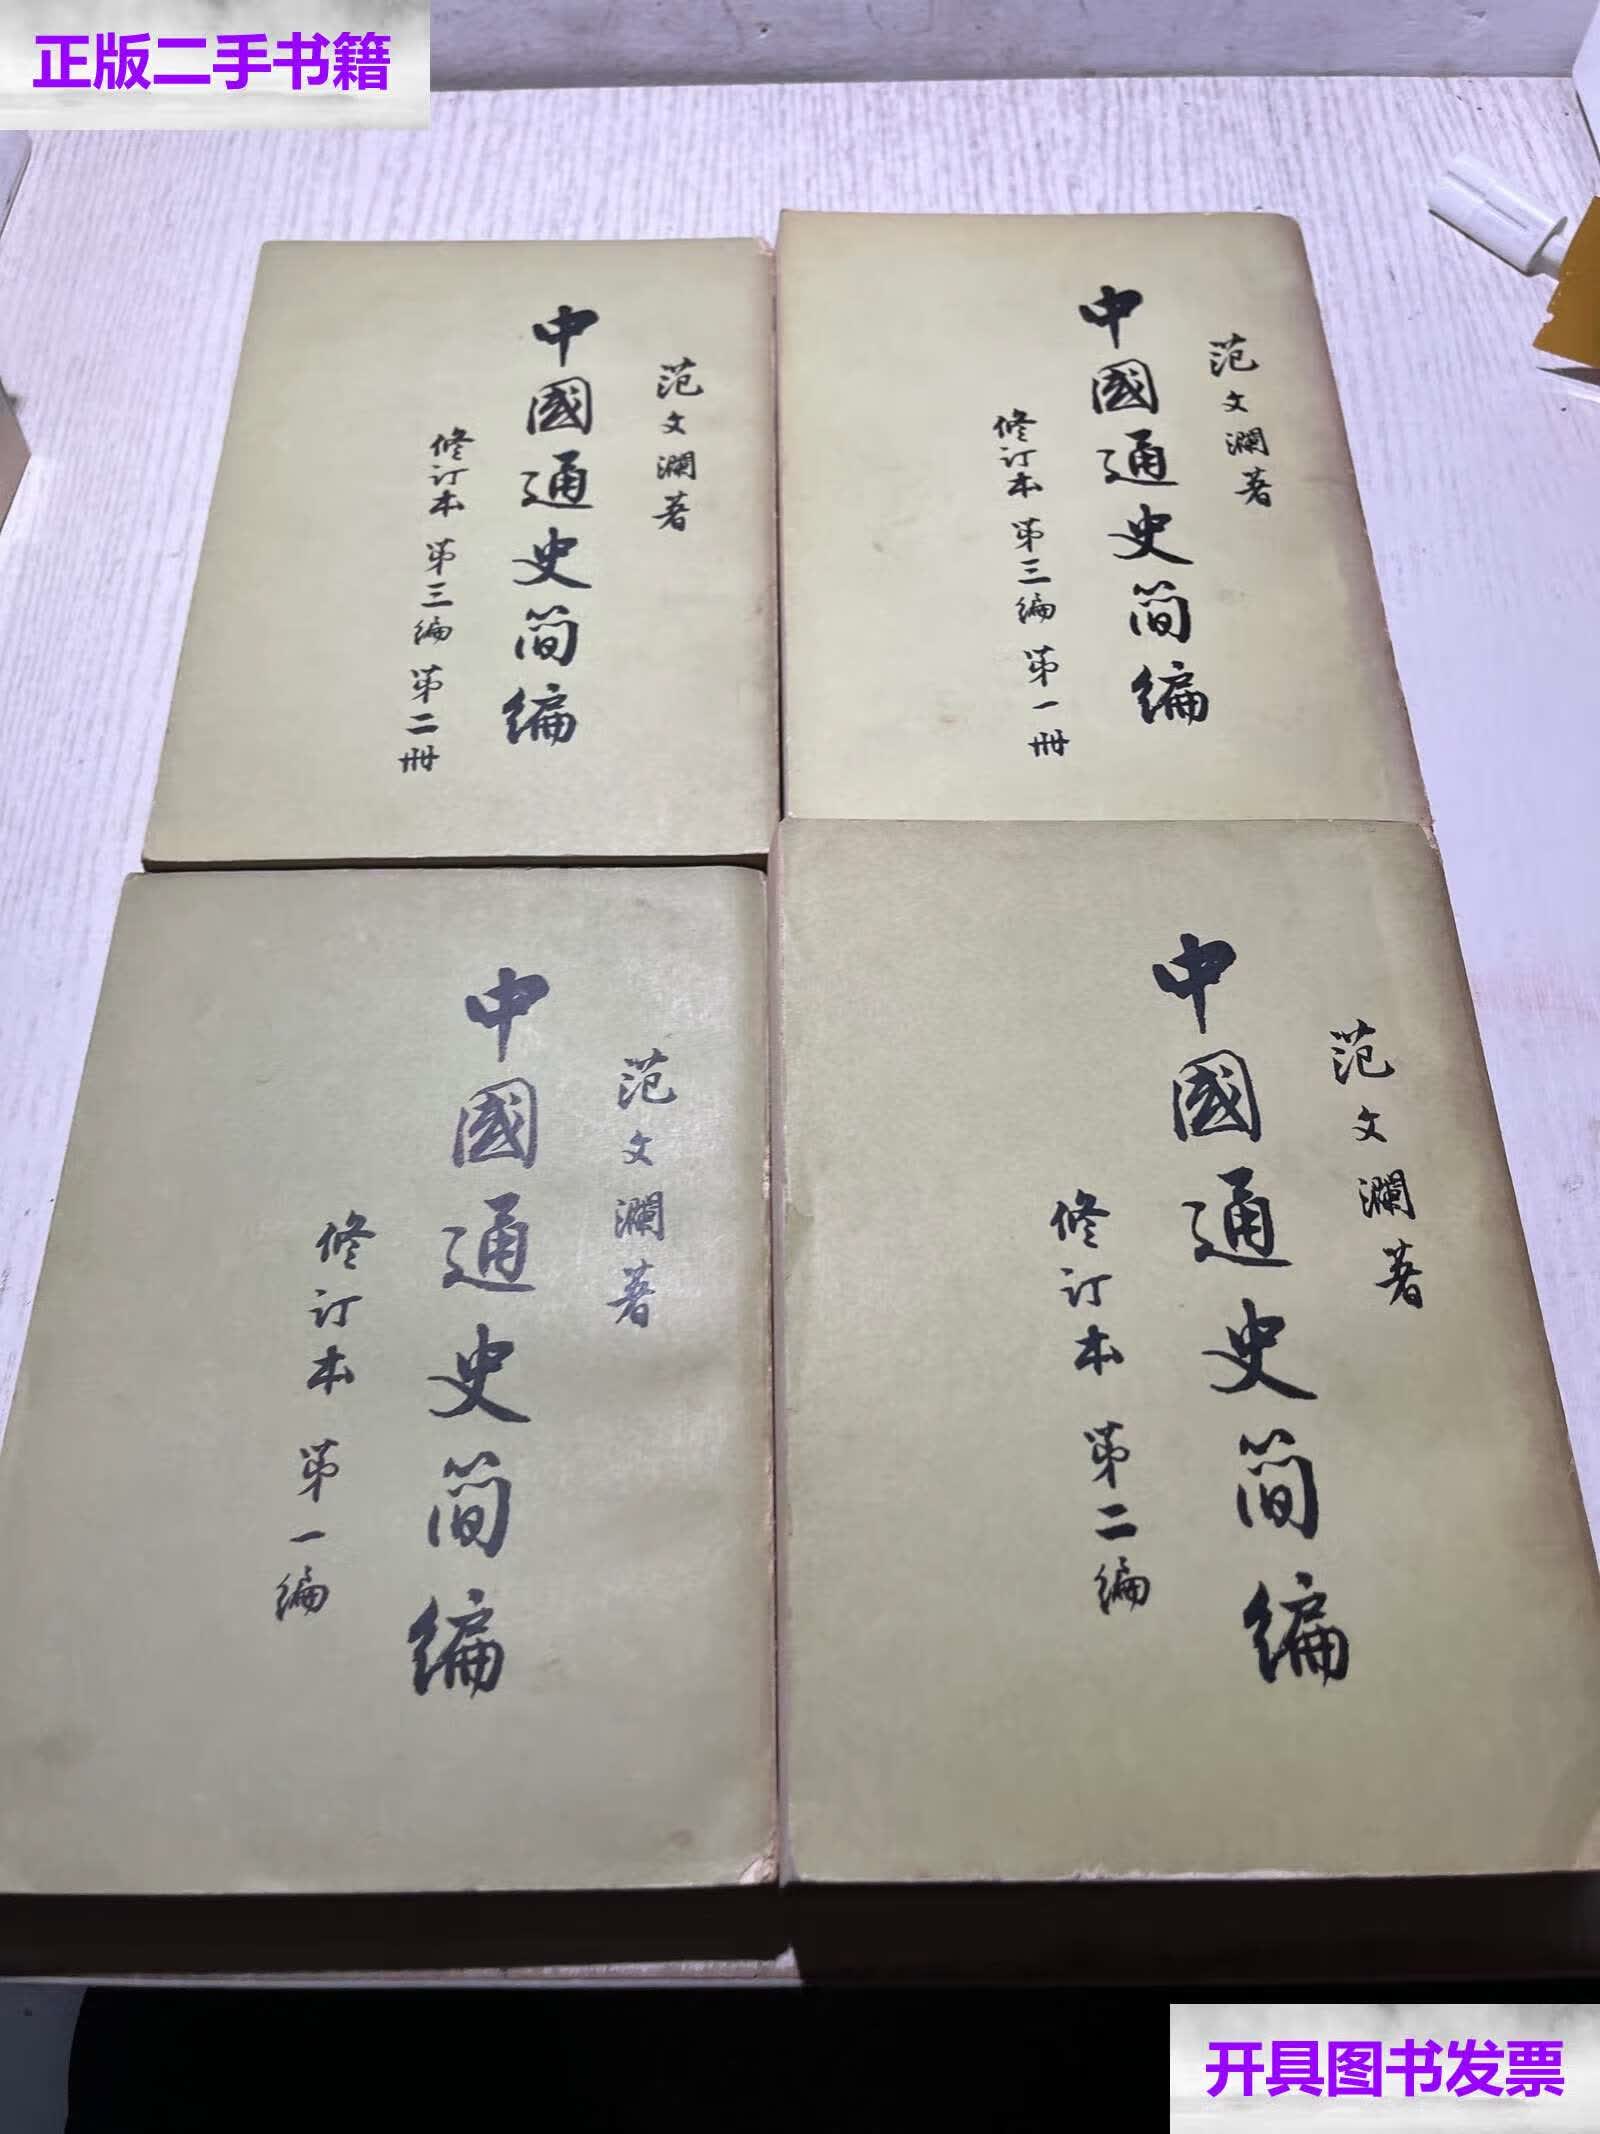 正版二手书籍
范文澜著
中國通史简编
修订本 第三编 第二册
范文澜著
中國通史简编
修订本 第三编 第一册
范文澜著
中國通史简编
修订本 第一编
范文澜著
中國通史简编
修订本 第二编
开具图书发票